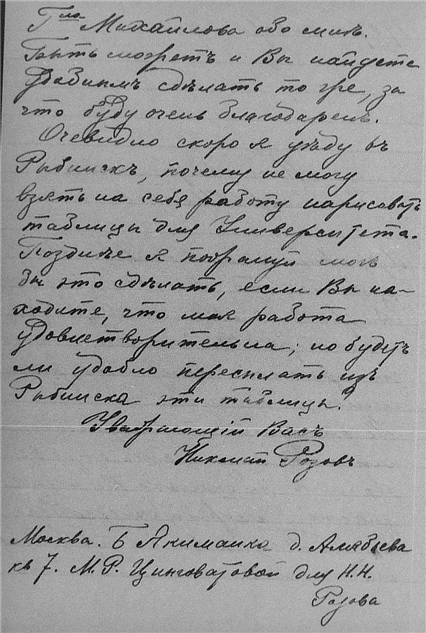 Г-на Михайлова обо мнѣ.
Быть можетъ и Вы найдете
удобнымъ сдѣлать то же, за
что буду очень благодаренъ.
Очевидно скоро я уѣду въ
Рыбинскъ, почему не могу
взять на себя работу нарисовать
таблицы для Университета.
Позднѣе я пожалуй могъ
бы это сдѣлать, если Вы на-
ходите, что моя работа
удовлетворительна; но будетъ
ли удобно пересылать изъ
Рыбинска эти таблицы?
Уважающій Васъ
Николай Розовъ
Москва. Б Якиманка д. Алябьева
кв 7. М.Р. Цинговатовой для Н.Н.
Розова